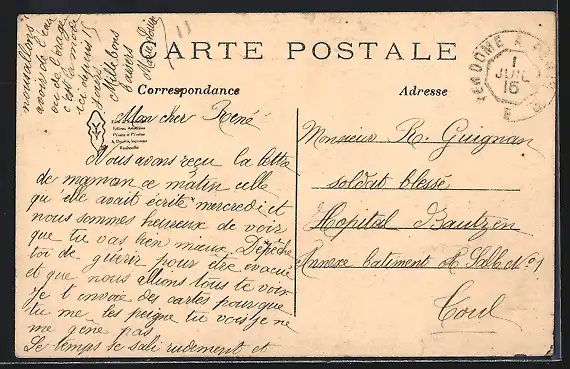 CARTE POSTALE
Correspondance
Adresse
VENDOME A PARIS
1
JUIL
16
Mon cher René
Nous avons reçu la lettre
de maman ce matin celle
qu'elle avait écrite mercredi et
nous sommes heureux de voir
que tu vas bien mieux. Dépêche
toi de guérir pour être évacué
et que nous allions tous te voir
Je t envoie des cartes pour que
tu me les peigne tu vois je ne
me gêne pas
Le temps se sali rudement et
nous allons
avoir de l'eau
ou de l'orage
c'est la mode
ici depuis
jours
Mille bons
baisers
Monsieur R. Guignan
soldat blessé
Hopital Bautzen
Annexe batiment A Salle No 1
Toul